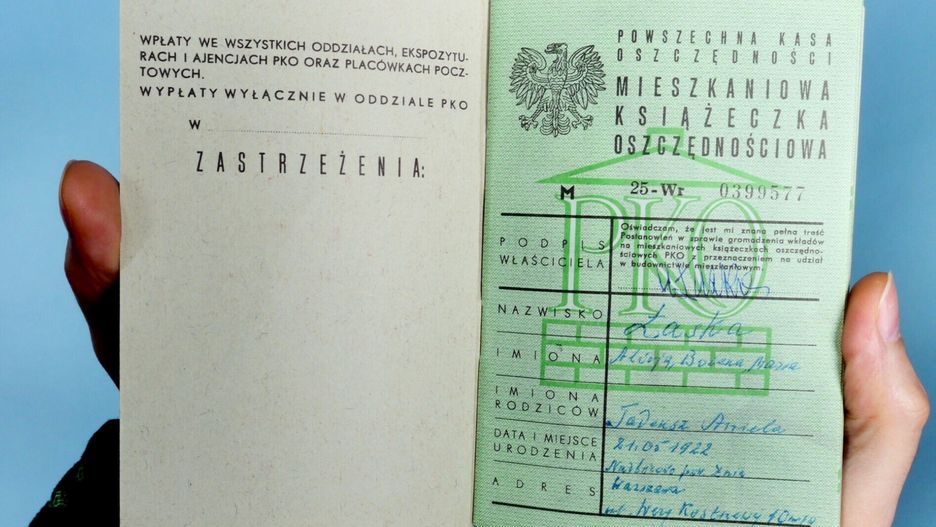 WPŁATY WE WSZYSTKICH ODDZIAŁACH, EKSPOZYTU-
RACH I AJENCJACH PKO ORAZ PLACÓWKACH POCZ-
TOWYCH.
WYPŁATY WYŁĄCZNIE W ODDZIALE PKO
W
ZASTRZEŻENIA:
POWSZECHNA KASA
OSZCZĘDNOŚCI
MIESZKANIOWA
KSIĄŻECZKA
OSZCZĘDNOŚCIOWA
M 25-Wr 0399577
PKO
PODPIS
WŁAŚCICIELA
Oświadczam, że jest mi znana pełna treść
Postanowień w sprawie gromadzenia wkładów
na mieszkaniowych książeczkach oszczędno-
ściowych PKO i przeznaczeniem na udział
w budownictwie mieszkaniowym
NAZWISKO Łaska
IMIONA Alicja, Bożena Maria
IMIONA
RODZICÓW Tadeusz Aniela
DATA I MIEJSCE
URODZENIA 21.05 1922
pow Żnin
ADRES Warszawa
ul.